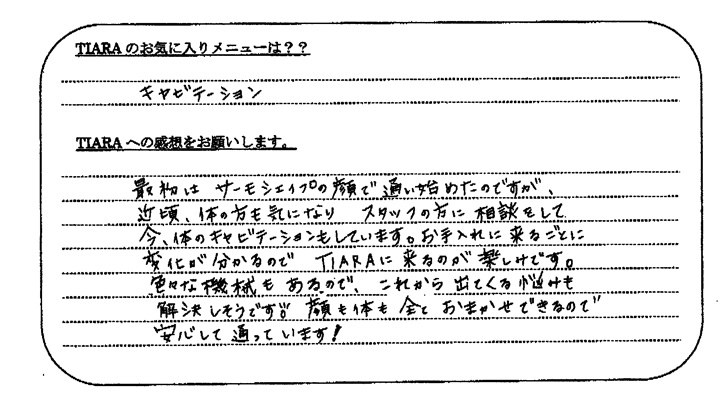 TIARAのお気に入りメニューは??
キャビテーション
TIARAへの感想をお願いします。
最初は サーモシェイプの顔で通い始めたのですが、
近頃、体の方も気になり スタッフの方に相談をして
今、体のキャビテーションもしています。お手入れに来るごとに
変化が分かるので TIARAに来るのが楽しみです。
色々な機械もあるので、これから出てくる悩みも
解決しそうです!! 顔も体も全ておまかせできるので
安心して通っています!